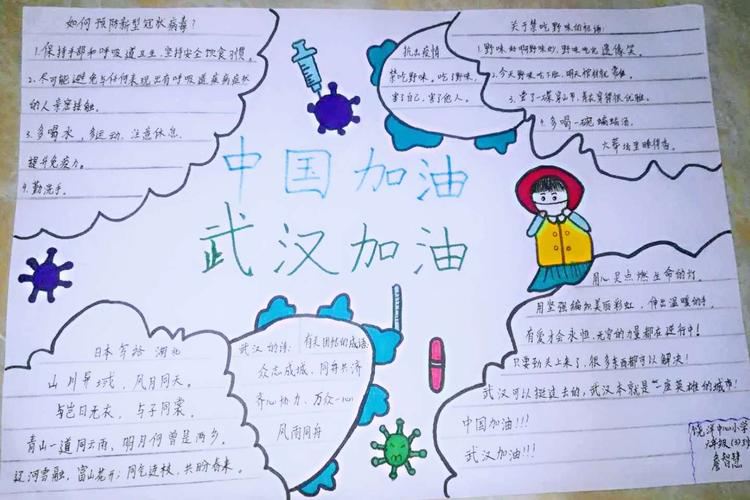 如何预防新型冠状病毒?
1.保持手部和呼吸道卫生,坚持安全饮食习惯。
2.不可能避免与任何表现出有呼吸道疾病症状
的人亲密接触。
3.多喝水,多运动,注意休息,
提升免疫力。
4.勤洗手。
抗击疫情
禁吃野味,吃了野味,
害了自己,害了他人。
关于禁吃野味的标语:
1.野味好啊野味妙,野味吃完遗像笑。
2.今天野味吃下肚,明天棺材就
3.尝了一碟穿山甲,
4.多喝一碗蝙蝠汤,
火葬场里睡得香。
中国加油
武汉加油
用心灵点燃生命的灯。
用坚强编织美丽彩虹,伸出温暖的手。
有爱才会永恒,无穷的力量都在进行中!
只要劲头上来了,很多东西都可以解决!
武汉可以挺过去的,武汉本就是一座英雄的城市!
中国加油!!!
武汉加油!!!
日本寄给湖北
山川异域,风月同天。
与岂曰无衣,与子同裳。
青山一道同云雨,明月何曾是两乡。
辽河雪融,富山花开;同气连枝,共盼春来。
武汉的诗:有关团结的成语:
众志成城、同舟共济
齐心协力、万众一心
风雨同舟
中心小学
六年级(3)
詹智慧